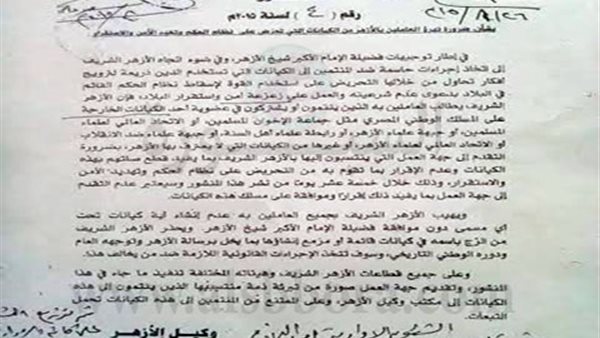 ٢٠١٥/٨/٢٦
رقم (٤) لسنة ٢٠١٥
بشأن ضرورة تبرئة العاملين بالأزهر من الكيانات التي تحرض على نظام الحكم وتهديد الأمن والاستقرار
في إطار توجيهات فضيلة الإمام الأكبر شيخ الأزهر، وفي ضوء اتجاه الأزهر
إلى اتخاذ إجراءات حاسمة ضد المنتمين إلى الكيانات التي تستخدم الدين ذريعة لترويج
أفكار تحاول من خلالها التحريض على استخدام القوة لإسقاط نظام الحكم القائم
في البلاد بدعوى عدم شرعيته والعمل على زعزعة أمن واستقرار البلاد، فإن الأزهر
الشريف يطالب العاملين به الذين ينتمون أو يشاركون في عضوية أحد الكيانات الخارجة
على المسلك الوطني المصري مثل جماعة الإخوان المسلمين، أو الاتحاد العالمي لعلماء
المسلمين، أو جبهة علماء الأزهر، أو رابطة علماء أهل السنة، أو جبهة علماء ضد الانقلاب
أو الاتحاد العالمي لعلماء الأزهر، أو غيرها من الكيانات التي لا يعترف بها الأزهر، بضرورة
التقدم إلى جهة العمل التي ينتسبون إليها بالأزهر الشريف بما يفيد، قطع صلاتهم بهذه
الكيانات وعدم الإقرار بما تقوم به من التحريض على نظام الحكم وتهديد، الأمن
والاستقرار، وذلك خلال خمسة عشر يومًا من نشر هذا المنشور وسيعتبر عدم التقدم
إلى جهة العمل بما يفيد ذلك إقرارًا وموافقة على مسلك هذه الكيانات.
ويهيب الأزهر الشريف بجميع العاملين به عدم إنشاء أية كيانات تحت
أي مسمى دون موافقة فضيلة الإمام الأكبر شيخ الأزهر. ويحذر الأزهر الشريف
من الزج باسمه في كيانات قائمة أو مزمع إنشاؤها بما يخل برسالة الأزهر وتوجهه العام
ودوره الوطني التاريخي، وسوف تتخذ الإجراءات القانونية اللازمة ضد من يخالف هذا.
وعلى جميع قطاعات الأزهر الشريف وهيئاته المختلفة تنفيذ ما جاء في هذا
المنشور، وتقديم جهة العمل صورة من تبرئة ذمة منتسبيها الذين ينتمون إلى هذه
الكيانات إلى مكتب وكيل الأزهر، وعلى الممتنع من المنتمين إلى هذه الكيانات تحمل
التبعات.
وكيل الأزهر